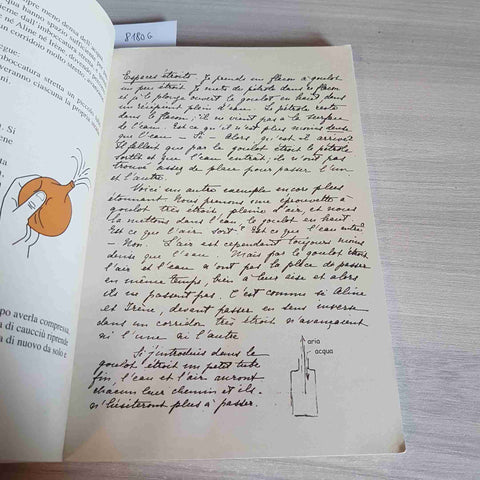 pre meno densa dell'acqua
qua hanno spazio sufficiente
eme dall'imboccatura stretta
né Aline né Irène
un corridoio molto stretto
egue.
boccatura stretta un piccolo
veranno ciascuna la propria
ni.
Si
ene
ta
po averla compressa
a di caucciù riprende
a di nuovo da solo e
8180 G
Espaces étroits. Je prends un flacon à goulot
un peu étroit. Je mets du pétrole dans ce flacon
et je le plonge ouvert le goulot en haut dans
un récipient plein d'eau. Le pétrole reste
dans le flacon; il ne vient pas à la surface
de l'eau. Est ce qu'il n'est plus moins dense
que l'eau. – Si – Alors, qu'est il arrivé?
Il fallait que par le goulot étroit le pétrole
sortît et que l'eau entrât; ils n'ont pas
trouvé assez de place pour passer l'un
et l'autre.
Voici un autre exemple encore plus
étonnant. Nous prenons une éprouvette à
goulot très étroit, pleine d'air, et nous
la mettons dans l'eau, le goulot en haut.
Est ce que l'air sort? Est ce que l'eau entre?
– Non. L'air est cependant toujours moins
dense que l'eau. Mais par le goulot étroit
l'air et l'eau n'ont pas la place de passer
en même temps, bien à leur aise et alors
ils ne passent pas. C'est comme si Aline
et Irène, devant passer en sens inverse
dans un corridor très étroit n'avançaient
ni l'une ni l'autre
Si j'introduis dans le
goulot étroit un petit tube
fin, l'eau et l'air auront
chacun leur chemin et ils
n'hésiteront plus à passer.
aria
acqua